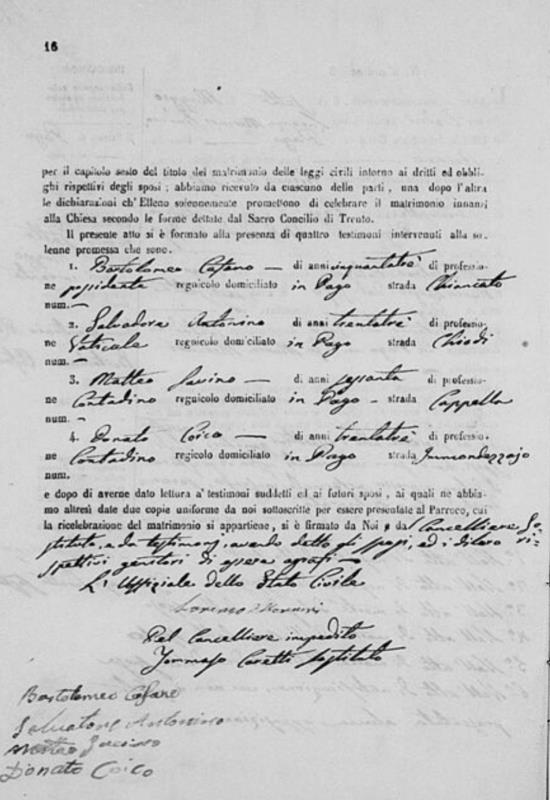 16
per il capitolo sesto del titolo del matrimonio delle leggi civili intorno ai dritti ed obbli-
ghi rispettivi degli sposi; abbiamo ricevuto da ciascuno delle parti, una dopo l'altra
le dichiarazioni ch'Elleno solennemente promettono di celebrare il matrimonio innanzi
alla Chiesa secondo le forme dettate dal Sacro Concilio di Trento.
Il presente atto si è formato alla presenza di quattro testimoni intervenuti alla so-
lenne promessa che sono.
1. Bartolomeo Cafaro — di anni cinquantatrè di professio-
ne possidente regnicolo domiciliato in Pago strada
num. —
2. Salvadore Antonino di anni trentatrè di professio-
ne Vaticale regnicolo domiciliato in Pago strada Chiodi
num. —
3. Matteo — di anni sessanta di professio-
ne Contadino regnicolo domiciliato in Pago — strada Cappella
num. —
4. Donato Coico — di anni trentatrè di professio-
ne Contadino regicolo domiciliato in Pago strada Immondezzajo
num.
e dopo di averne dato lettura a' testimoni suddetti ed ai futuri sposi, ai quali ne abbia-
mo altresì date due copie uniforme da noi sottoscritte per essere presentate al Parroco, cui
la ricelebrazione del matrimonio si appartiene, si è firmato da Noi, da Cancelliere So-
stituto, e da testimonj, avendo detto gli sposi, ed i diloro ri-
spettivi genitori di essere
L' Uffiziale dello Stato Civile
Pel Cancelliere impedito
Tommaso sostituto
Bartolomeo Cafaro
Salvatore Antonino
Matteo
Donato Coico